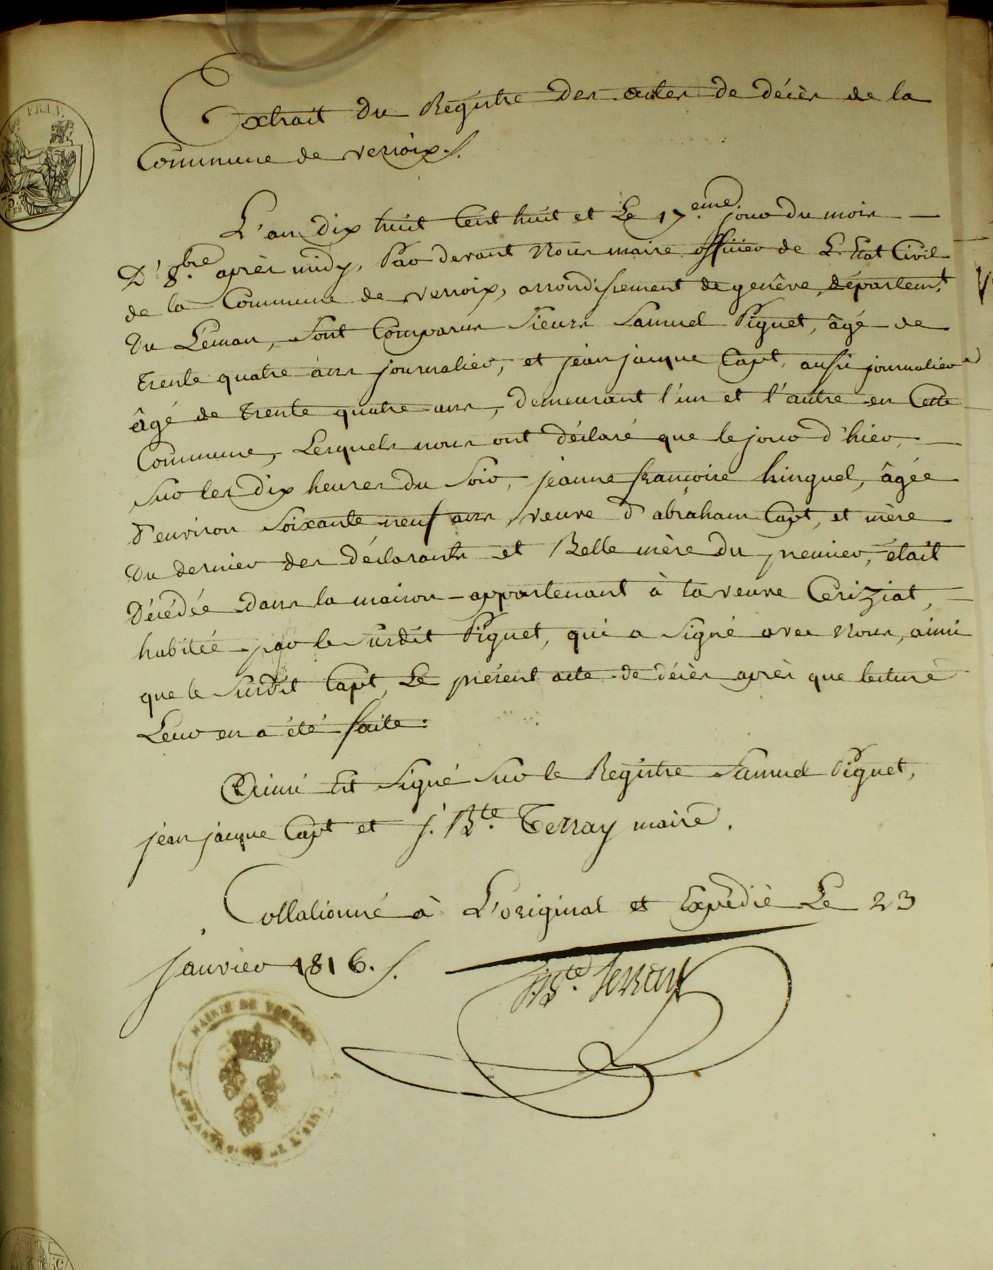 Extrait du Registre des actes de décès de la
Commune de Versoix.
L'an dix huit Cent huit et Le 17.eme jour du mois
D'8.bre après midy, Par devant Nous maire officier de L'Etat Civil
de la Commune de Versoix, arrondissement de genêve, départem.t
du Léman, Sont Comparus Sieurs Samuel Piguet, âgé de
trente quatre ans journalier, et jean jacque Capt, aussi journalier
âgé de trente quatre ans, demeurant l'un et l'autre en Cette
Commune, Lesquels nous ont déclaré que le jour d'hier,
Sur les dix heures du Soir, jeanne françoise hinguel, âgée
d'environ Soixante neuf ans, veuve d'abraham Capt, et mère
du dernier des déclarants et Belle mère du premier, était
Décédée dans la maison appartenant à la veuve Ceriziat,
habitée par le Susdit Piguet, qui a Signé avec Nous, ainsi
que le Susdit Capt, Le présent acte de décès après que lecture
Leur en a été faite:
Ainsi Est Signé Sur le Registre Samuel Piguet,
jean jacque Capt et j. B.te Terray maire.
Collationné à L'original et Expédié Le 23
janvier 1816.
J B.te Terray
MAIRIE DE VERSOIX
DE L'AIN